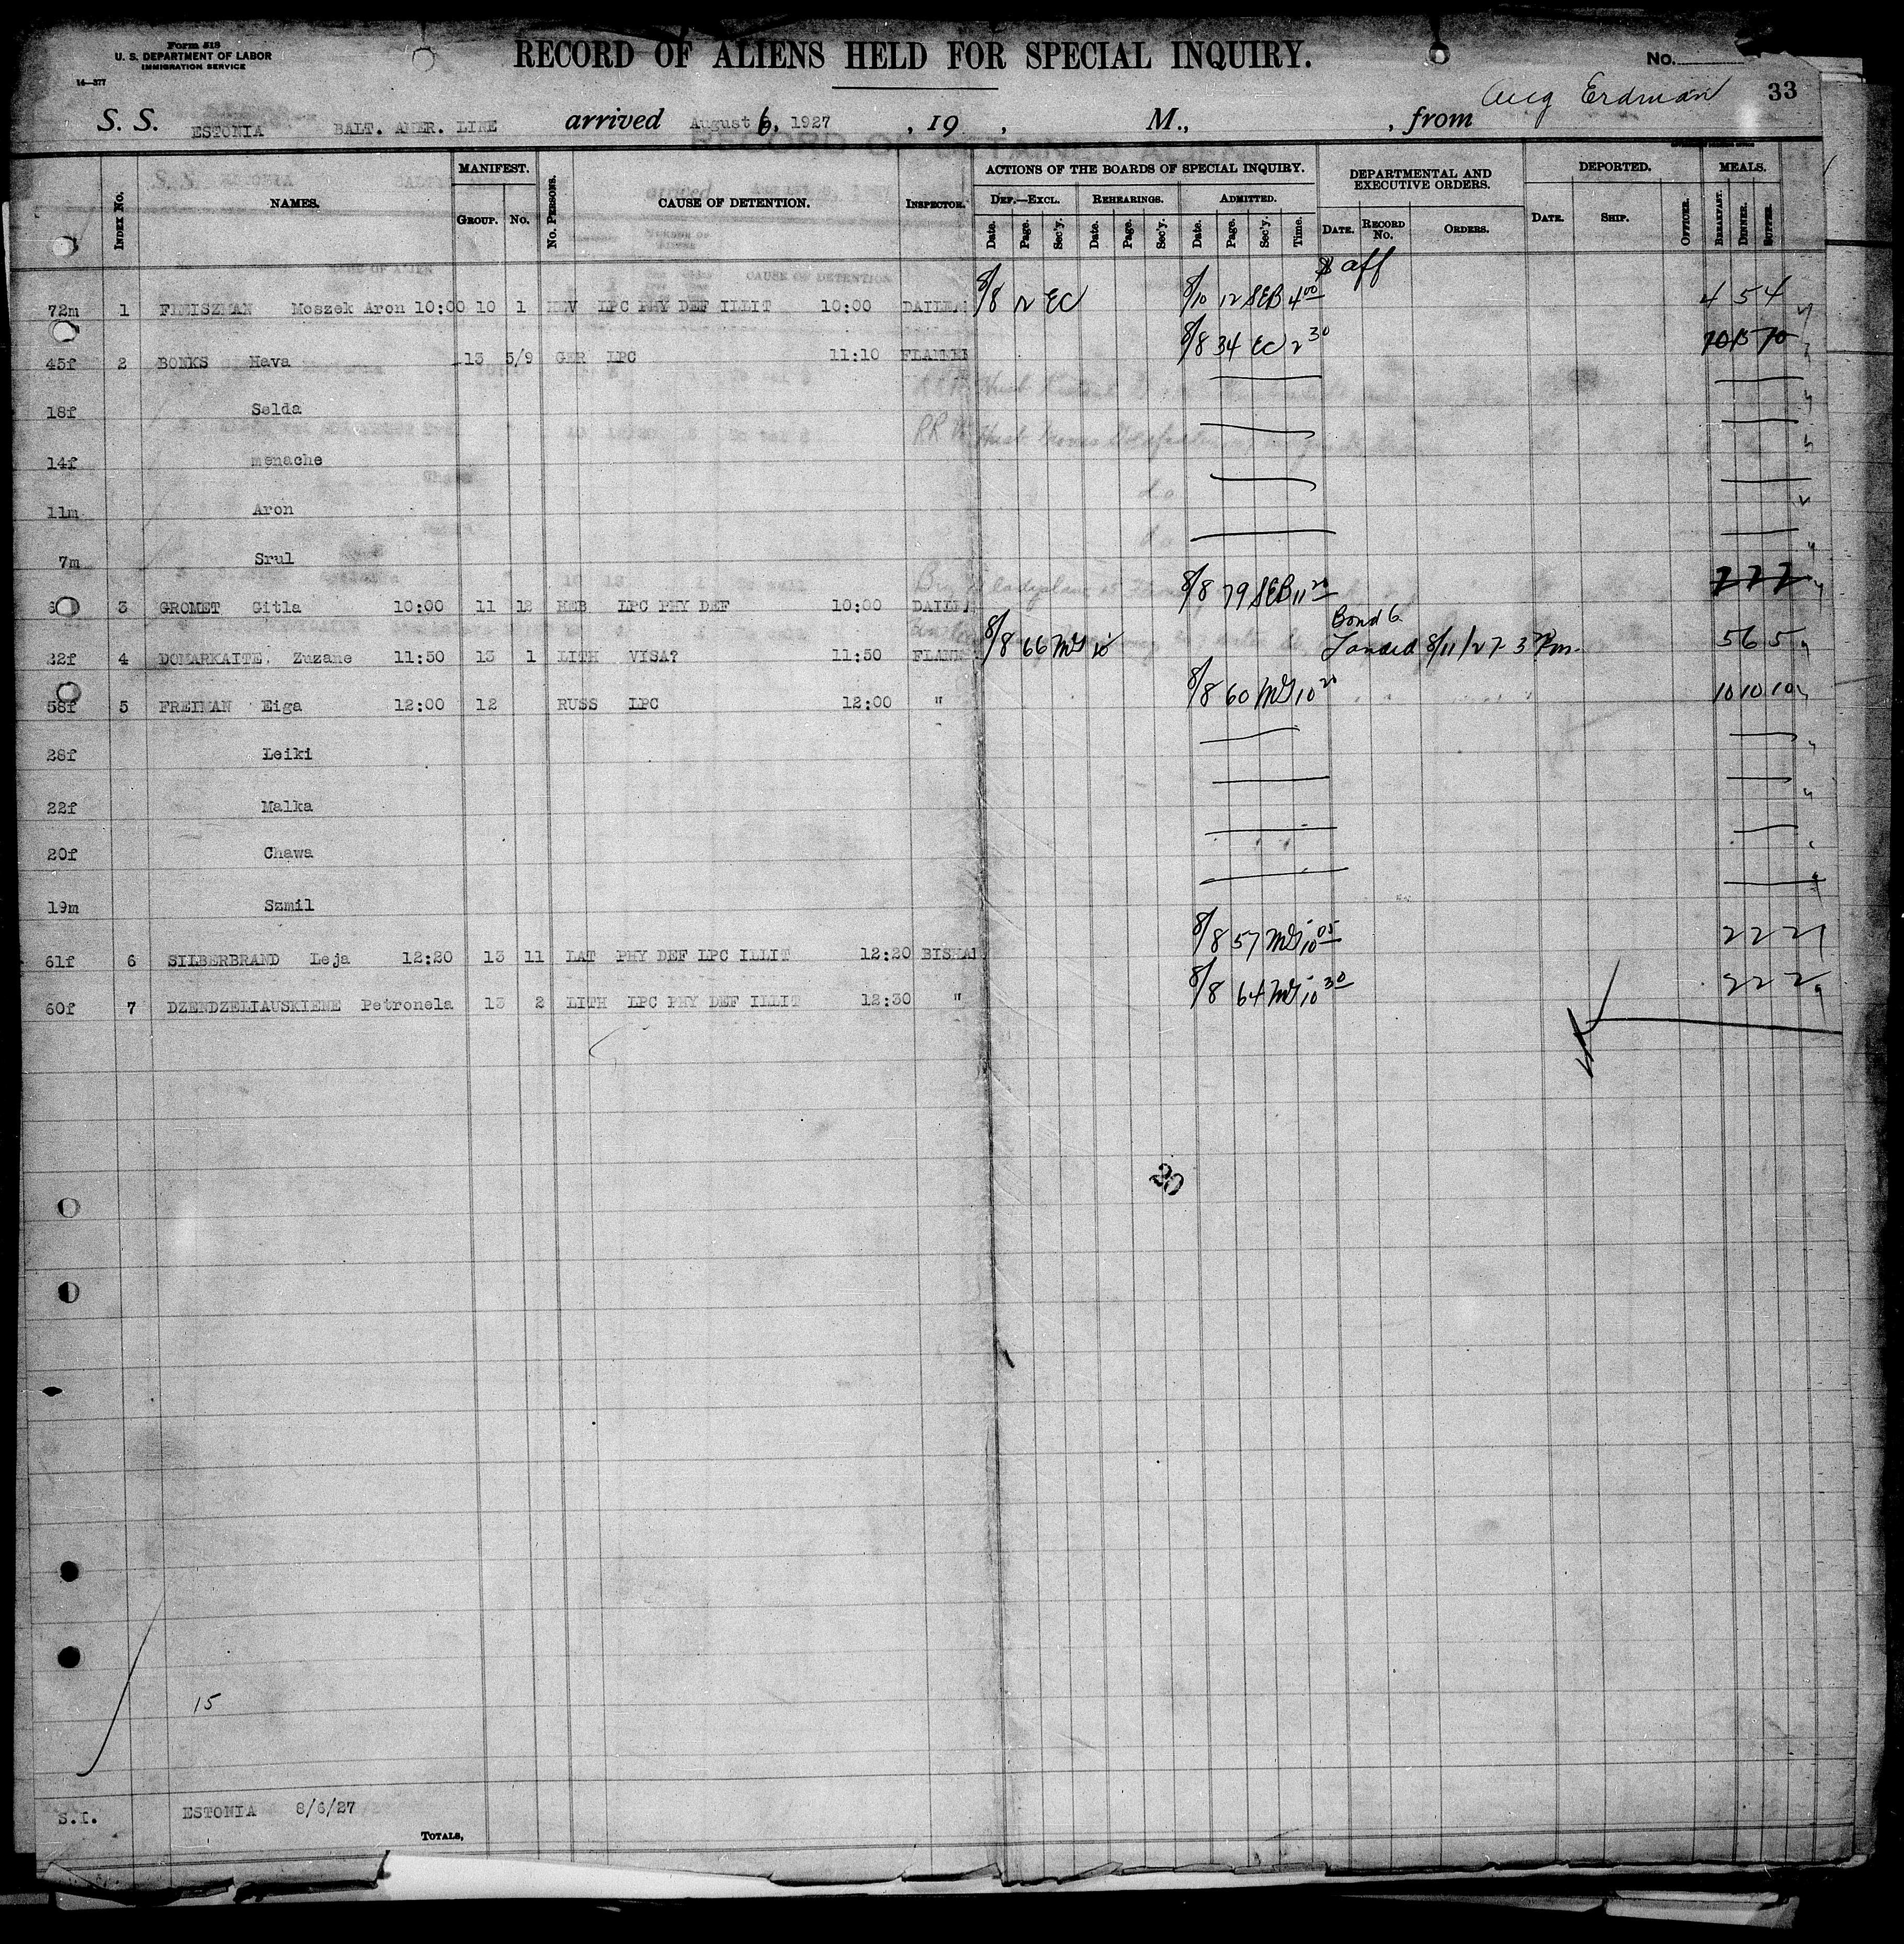 Form 518
U. S. DEPARTMENT OF LABOR
IMMIGRATION SERVICE
14—377
RECORD OF ALIENS HELD FOR SPECIAL INQUIRY.
No.
33
Aug Erdman
S. S. ESTONIA BALT. AMER. LINE arrived August 6, 1927 , 19 , M., , from
INDEX No. NAMES. MANIFEST. GROUP. No. No. PERSONS. CAUSE OF DETENTION. INSPECTOR.
ACTIONS OF THE BOARDS OF SPECIAL INQUIRY. DEF.—EXCL. REHEARINGS. ADMITTED.
Date. Page. Sec'y. Date. Page. Sec'y. Date. Page. Sec'y. Time.
DEPARTMENTAL AND EXECUTIVE ORDERS. DATE. RECORD No. ORDERS.
DEPORTED. DATE. SHIP. OFFICER.
MEALS. BREAKFAST. DINNER. SUPPER.
aff
72m 1 Moszek Aron 10:00 10 1 LPC PHY DEF ILLIT 10:00 8/8 12 EC 8/10 12 SEB 4 00 4 5 4
45f 2 BONKS Hava 13 5/9 GER LPC 11:10 8/8 34 EC 2 30 10 15 10
18f Selda
14f menache
11m Aron
7m Srul
3 GROMET Gitla 10:00 11 12 HEB LPC PHY DEF 10:00 8/8 79 SEB 11 20 2 2 2
22f 4 DOMARKAITE, Zuzane 11:50 13 1 LITH VISA? 11:50 8/8 66 Bond 6 Landed 8/11/27 3 Pm. 5 6 5
58f 5 FREIMAN Eiga 12:00 12 RUSS LPC 12:00 " 8/8 60 10 20 10 10 10
28f Leiki
22f Malka
20f Chawa
19m Szmil
61f 6 SILBERBRAND Leja 12:20 13 11 LAT PHY DEF LPC ILLIT 12:20 8/8 57 10 05 2 2 2
60f 7 DZENDZELIAUSKIENE Petronela 13 2 LITH LPC PHY DEF ILLIT 12:30 " 8/8 64 10 30 2 2 2
20
15
S.I. ESTONIA 8/6/27
TOTALS,